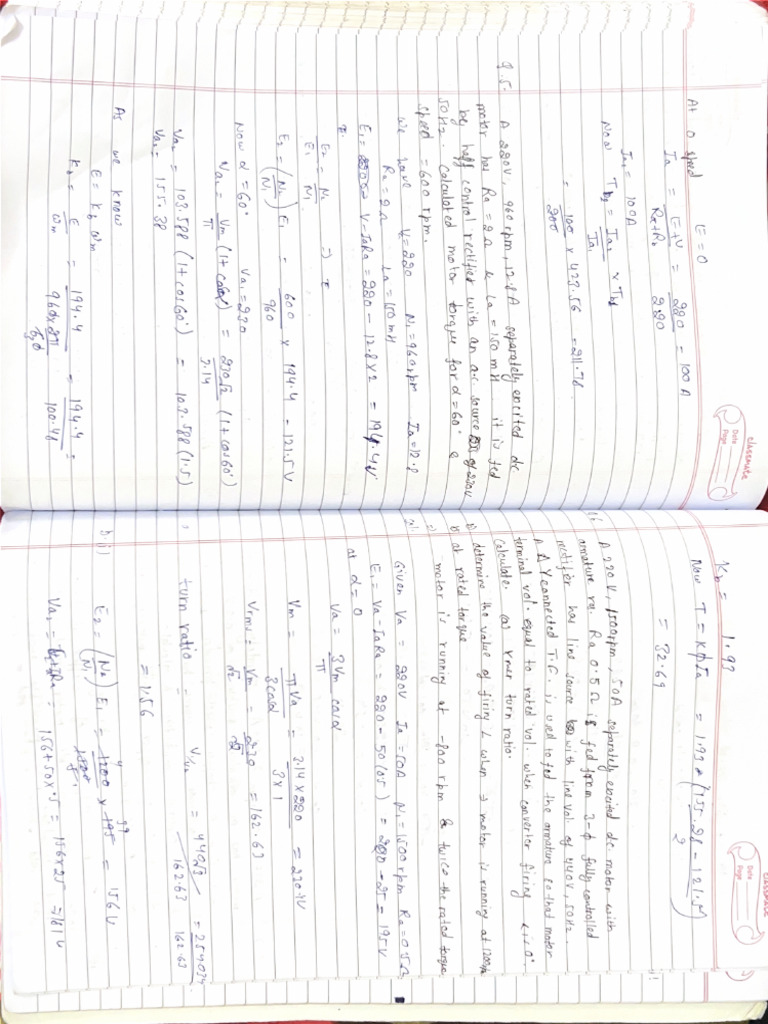 classmate
Date
Page
At 0 speed E=0
Ia = E+V / Ra+Rb = 220 / 2.20 = 100A
Ia₂ = 100A
Now Tb₂ = Ia₂ / Ia₁ × Tb₁
= 100 / 200 × 423.56 = 211.78
Q.5. A 220V, 960 rpm, 12.8 A separately excited dc
motor has Ra = 2Ω & La = 150 mH it is fed
by half control rectified with an a.c. source of 230V
50Hz. Calculated motor torque for α = 60° &
speed = 600 rpm.
We have V = 220 N₁ = 960 rpm Ia = 12.8
Ra = 2Ω La = 150 mH
E₁ = V - IaRa = 220 - 12.8×2 = 194.4V
E₂ / E₁ = N₂ / N₁ ⇒
E₂ = (N₂ / N₁) E₁ = 600 / 960 × 194.4 = 121.5V
Now α = 60° Va₁ = 230
Va₂ = Vm / π (1+cosα) = 230√2 / 3.14 (1+cos60°)
Va₂ = 103.588 (1+cos60°) = 103.588 (1.5)
Va₂ = 155.38
As we know
E = kb ωm
kb = E / ωm = 194.4 / 960×2π / 60 = 194.4 / 100.48 =
classmate
Date
Page
Kb = 1.93
Now T = KφIa = 1.93 × (155.28 - 121.5 / 2)
= 32.69
A 220 V, 1500rpm, 50A separately excited dc. motor with
armature re. Ra 0.5Ω is fed from 3-φ fully controlled
rectifier has line source with line vol. of 440V, 50Hz.
A Δ Y connected T.F. is used to fed the armature so that motor
terminal vol. equal to rated vol. when converter firing ∠ is 0°.
Calculate. (a) xmer turn ratio.
b) determine the value of firing ∠ when → motor is running at 1200rpm
at rated torque
motor is running at -800 rpm & twice the rated torque.
Given Va = 220V Ia = 50A N₁ = 1500 rpm Ra = 0.5Ω
E₁ = Va - IaRa = 220 - 50(0.5) = 220 - 25 = 195V
at α = 0
Va = 3Vm / π cosα
Vm = πVa / 3cosα = 3.14 × 220 / 3×1 = 230.1V
Vrms = Vm / √2 = 230 / √2 = 162.63
turn ratio = = 440/√3 / 162.63 = 254.034 / 162.63
= 1.56
b. i) E₂ = (N₂ / N₁) E₁ = 1200 / 1500 × 195 = 156 V
Va₂ = = 156+50×.5 = 156+25 = 181 V